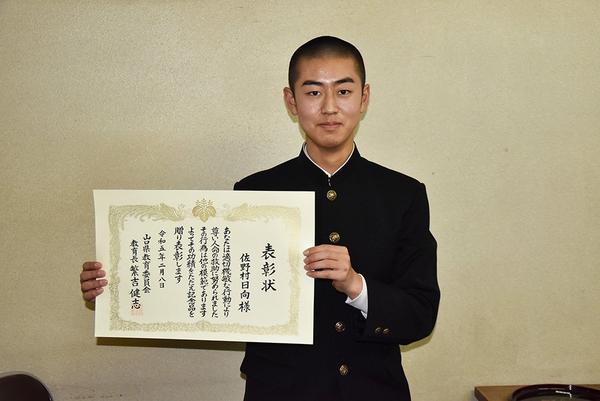 表彰状
佐野村日向様
あなたは適切機敏な行動により
尊い人命の救助に努められました
その行為は他の模範であります
よってその功績をたたえ記念品を
贈り表彰します
令和五年二月八日
山口県教育委員会
教育長 繁吉健志